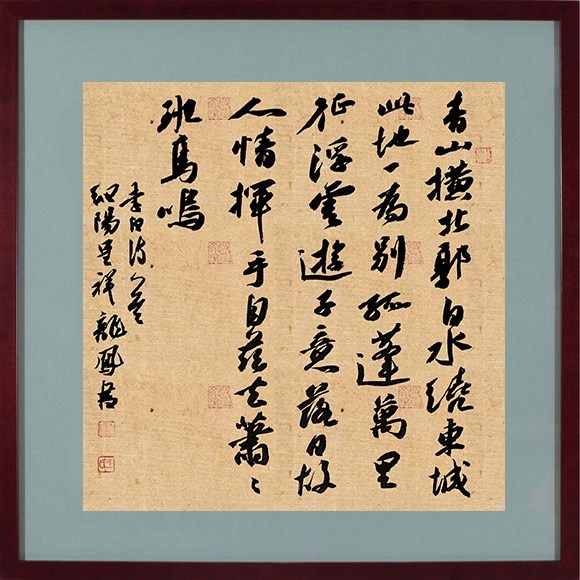 青山橫北郭白水繞東城
此地一為別孤蓬萬里
征浮雲遊子意落日故
人情揮手自茲去蕭〻
班馬鳴
李白詩一首
陽呈祥龍鳳書